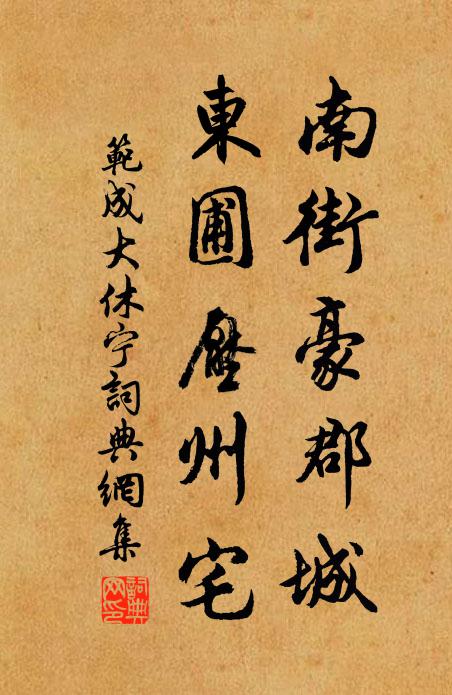 南街豪郡城
東圃壓州宅
範成大休宁詞典網集
詞典
网印